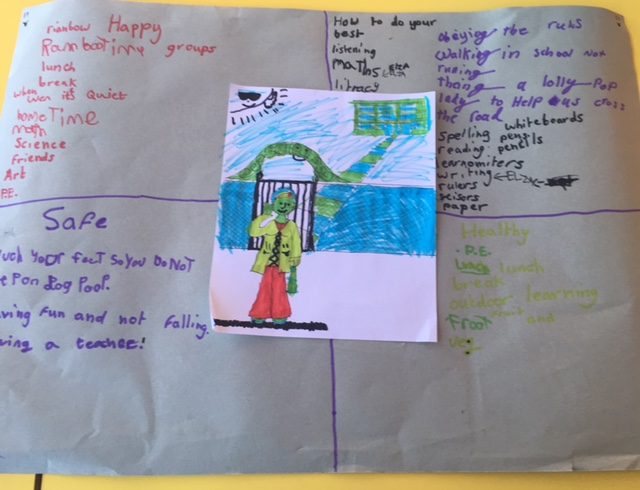 rainbow Happy
Rainbootime groups
lunch
break
when
wen it's Quiet
home Time
math
Science
Friends
Art
P.E.
How to do your
best
listening
maths
literacy
obeying the ruls
walking in school not
runing
a lolly pop
lady to Help us cross
the road
whiteboards
spelling pens
reading pencils
learnomiters
writing
rulers
scisors
paper
Safe
your feet so you Do NOT
on Dog Poo!.
Fun and not falling.
a teacher!
Healthy
P.E.
Lunch lunch
break
outdoor learning
froot fruit and
veg